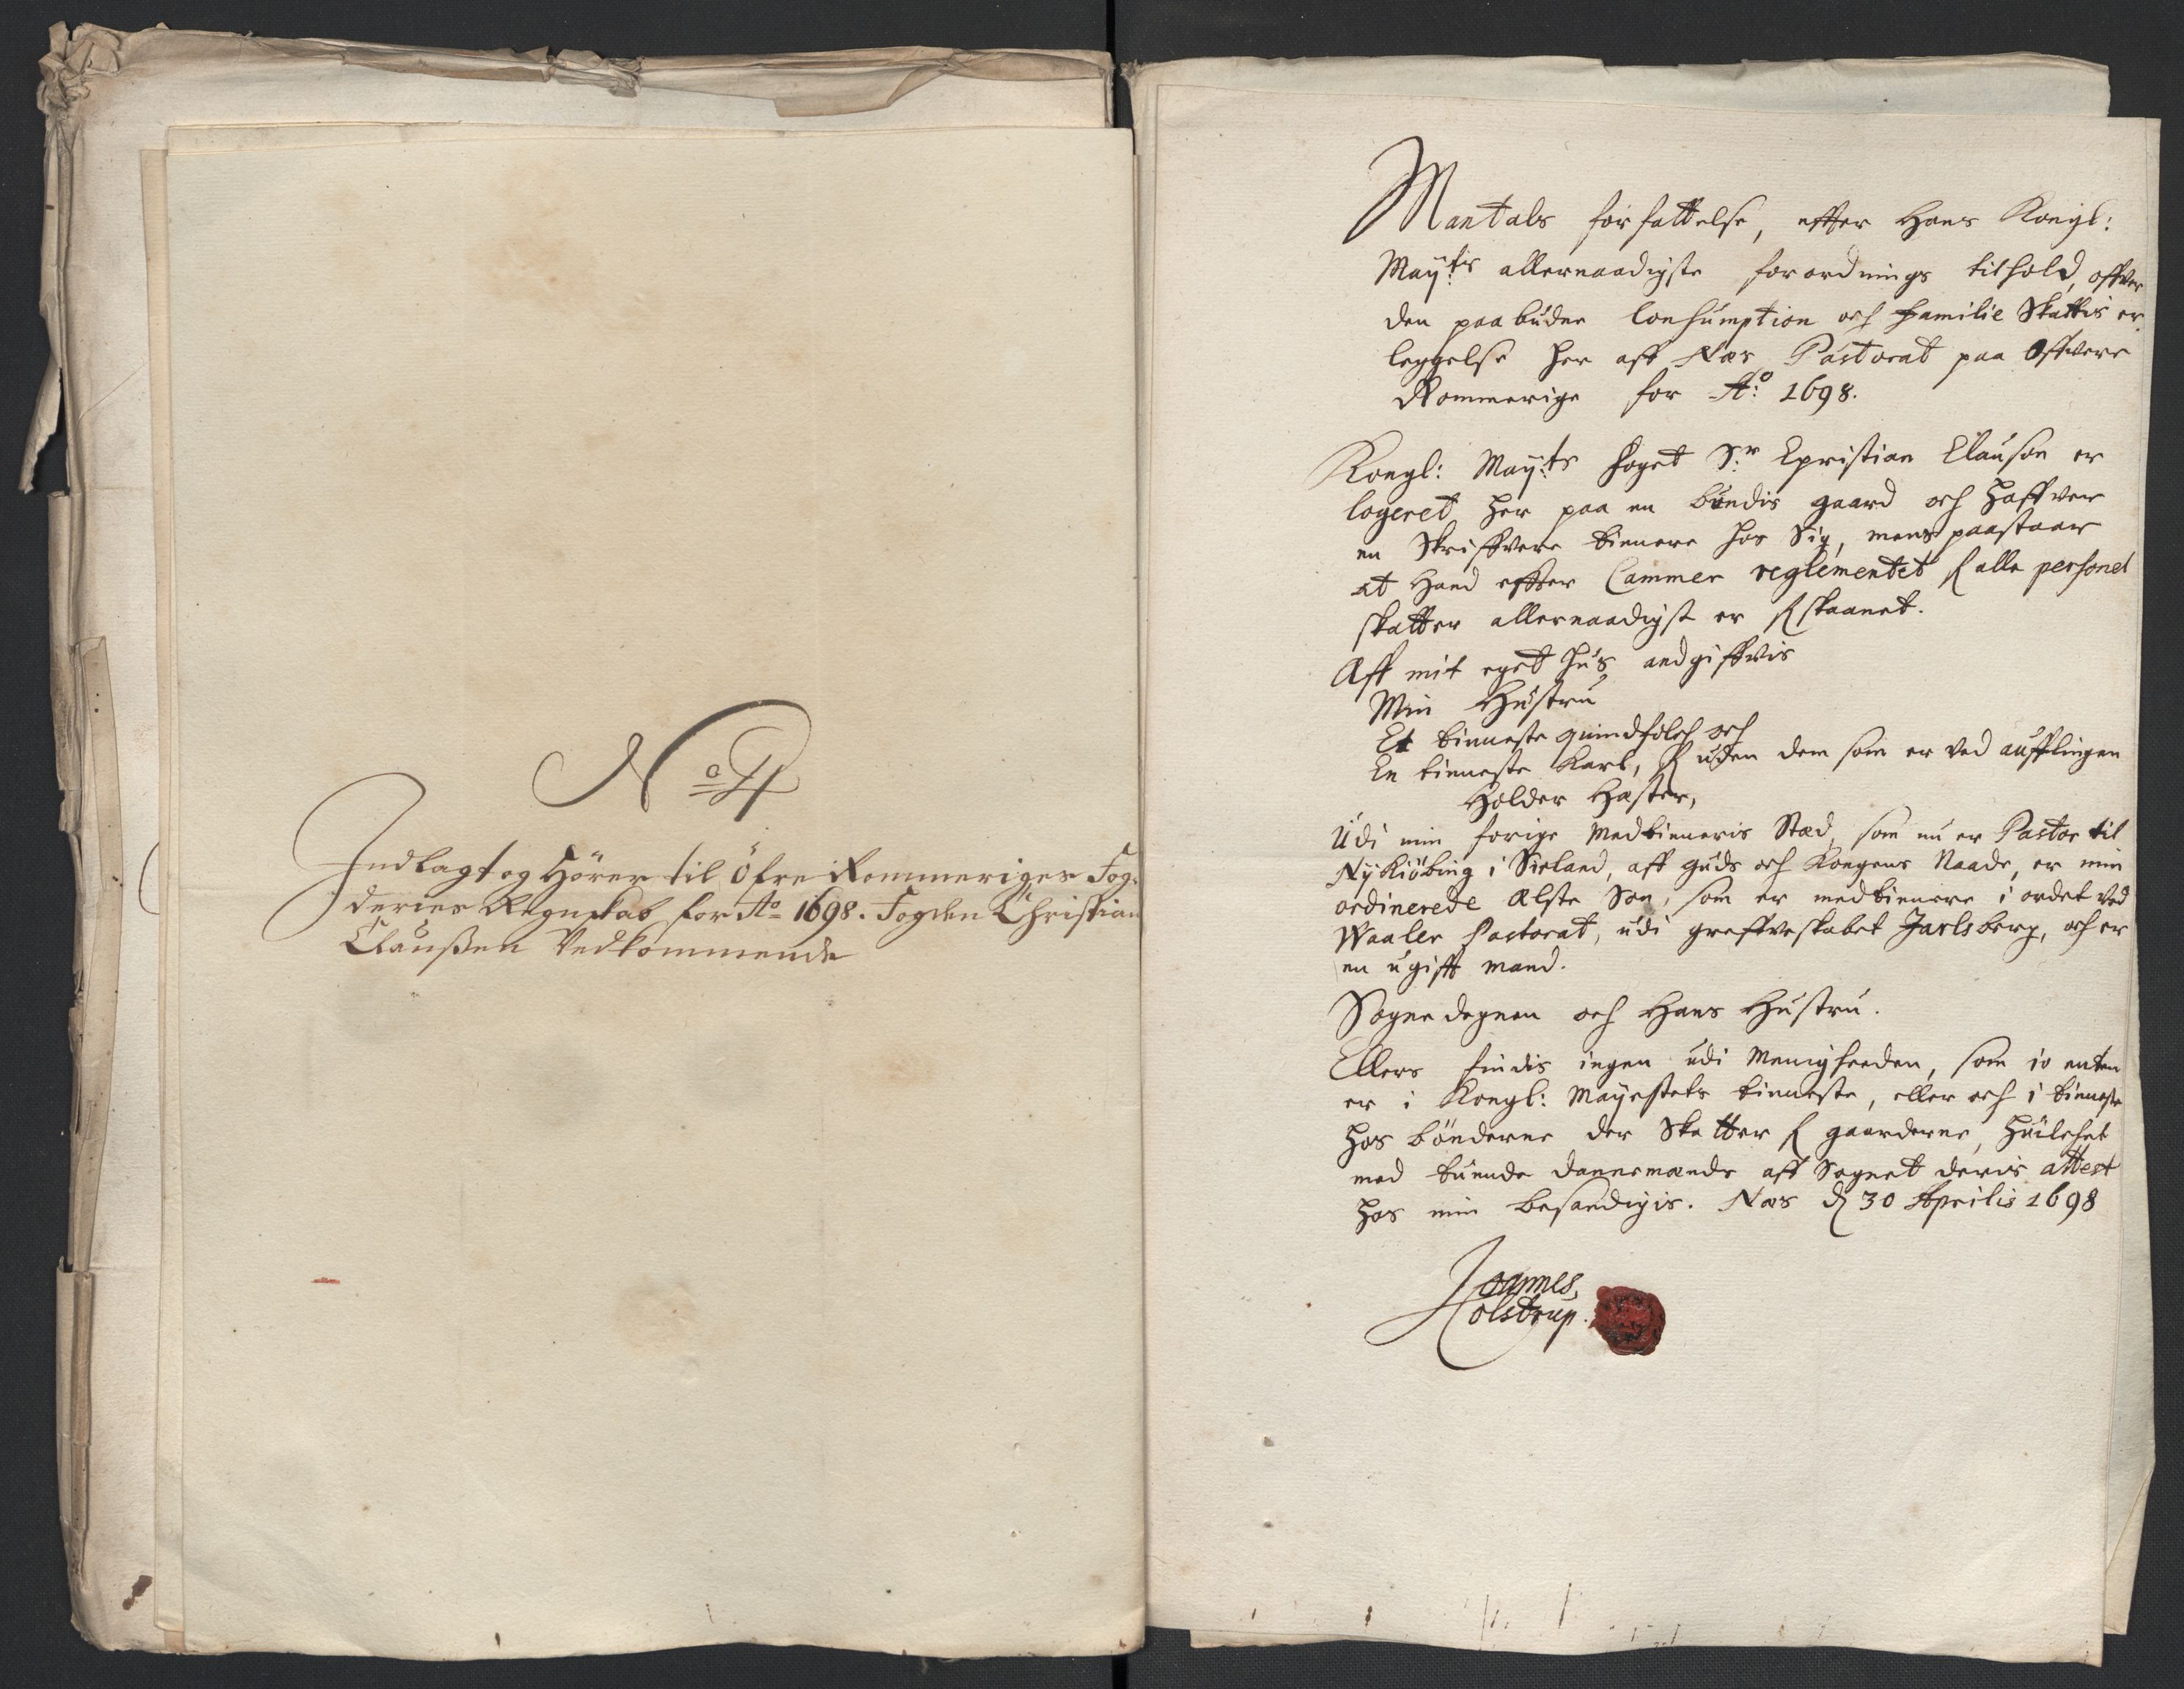 No 4
Indlagt og Hörer til Öfre Rommeriges Fog-
deries Regnskab for Ao 1698. Fogden Christian
Claußen Vedkommende
Mantals forfattelse, effter Hans Kongl:
Maÿ:ts allernaadigste forordnings tilhold, offver
den paabudne Consumption och familie Skattis er
leggelse her aff Næs Pastorat paa Offvere
Rommerige for Ao: 1698.
Kongl: Maÿ:ts foget Sr. Christian Clauson er
logeret her paa en bundis gaard och haffver
en Skriffvere tienere hos Sig, mens paastaar
at Hand effter Cammer reglementet f alle personel
skatter allernaadigst er f skaanet.
Aff mit eget hus andgiffvis
Min Hustru
Et tienneste quindfolch och
En tienneste Karl, f uden dem som er ved aufflingen
Holder Hæster,
Udi min forige Medtieneris Stæd, som nu er Pastor til
Nykiöbing i Sieland, aff guds och Kongens Naade, er min
ordinerede ælste Søn, som er medtienere i ordet ved
Waaler Pastorat, udi greffveskabet Jarlsberg, och er
en ugifft mand.
Sognedegnen och Hans Hustru.
Ellers findis ingen udi Menigheeden, som io enten
er i Kongl: Mayestets tienneste, eller och i tienneste
hos bönderne der Skatter f gaarderne, huilchet
med tuende dannemænds aff Sognet deris attest
hos min besandigis. Næs d 30 Aprilis 1698
Joannes
Holstrup.